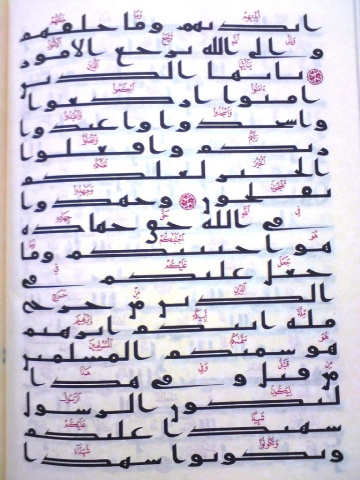 ايديهم وما خلفهم
و الى الله ترجع الامور
يايها الذين
امنوا اركعوا
واسجدوا واعبدوا
ربكم وافعلوا
الخير لعلكم
تفلحون وجهدوا
في الله حق جهاده
هو اجتبيكم وما
جعل عليكم في
الدين من حرج
مله ابيكم ابرهيم
هو سميكم المسلمين
من قبل و في هذا
ليكون الرسول
شهيدا عليكم
وتكونوا شهدا